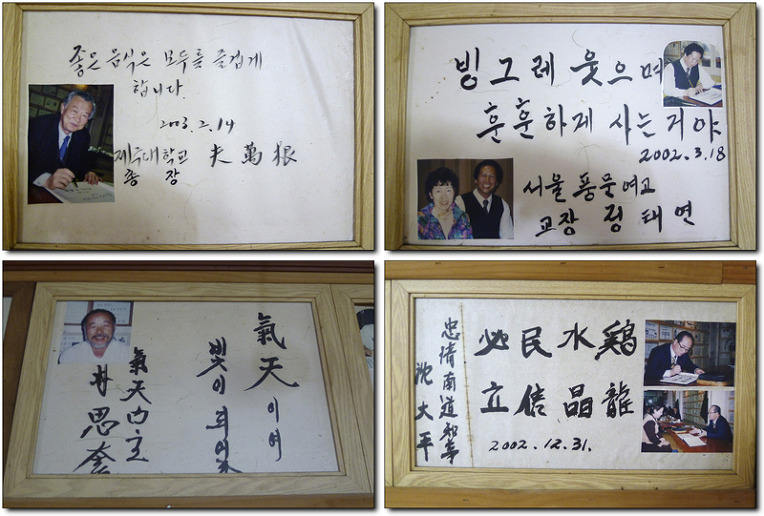 좋은 음식은 모두를 즐겁게
합니다.
2003.2.14
제주대학교 夫萬根
총장
빙그레 웃으며
훈훈하게 사는거야
2002.3.18
서울 풍문여고
교장 정태연
氣天이여
氣天門主
朴思奎
鶏龍
水晶
民信
必立
2002.12.31.
忠清南道知事
沈大平